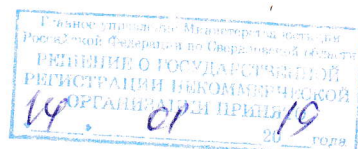 Главное управление Министерства юстиции
Российской Федерации по Свердловской области
РЕШЕНИЕ О ГОСУДАРСТВЕННОЙ
РЕГИСТРАЦИИ НЕКОММЕРЧЕСКОЙ
ОРГАНИЗАЦИИ ПРИНЯТО
14 01 2019 года